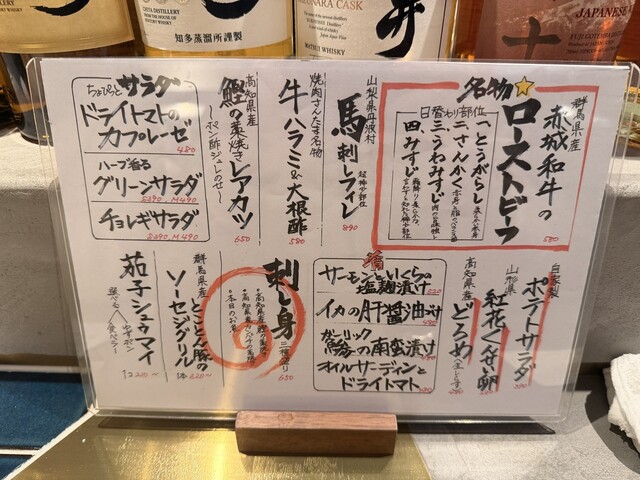 CHITA DISTILLERY
FROM THE HOUSE OF
SUNTORY WHISKY
知多蒸溜所謹製
CASK
MATSUI WHISKY
JAPANESE
名物
群馬県産
赤城和牛の
ローストビーフ
580
日替わり部位
一、とうがらし
二、さんかく
三、うわみすじ
四、みすじ
山梨県丹波村
馬刺しフィレ
超稀少部位
890
焼肉さんたま名物
牛ハラミ&大根酢
580
高知県産
鰹の藁焼きレアカツ
〜ポン酢ジュレのせ〜
650
ちょびっとサラダ
ドライトマトの
カプレーゼ
480
ハーブ香る
グリーンサラダ
S390、M490
チョレギサラダ
S390、M490
自家製
ポテトサラダ
390
山形県
紅花くんせい卵
高知県産
どろめ
サーモンといくらの
塩麹漬け
イカの肝醤油漬け
ガーリック
の南蛮漬け
オイルサーディンと
ドライトマト
刺し身
三種盛り
650
・本日のお魚
群馬県産
とことん豚の
ソーセージグリル
1本320〜
茄子シュウマイ
選べる
ゆずポン
食べラー
1コ210〜